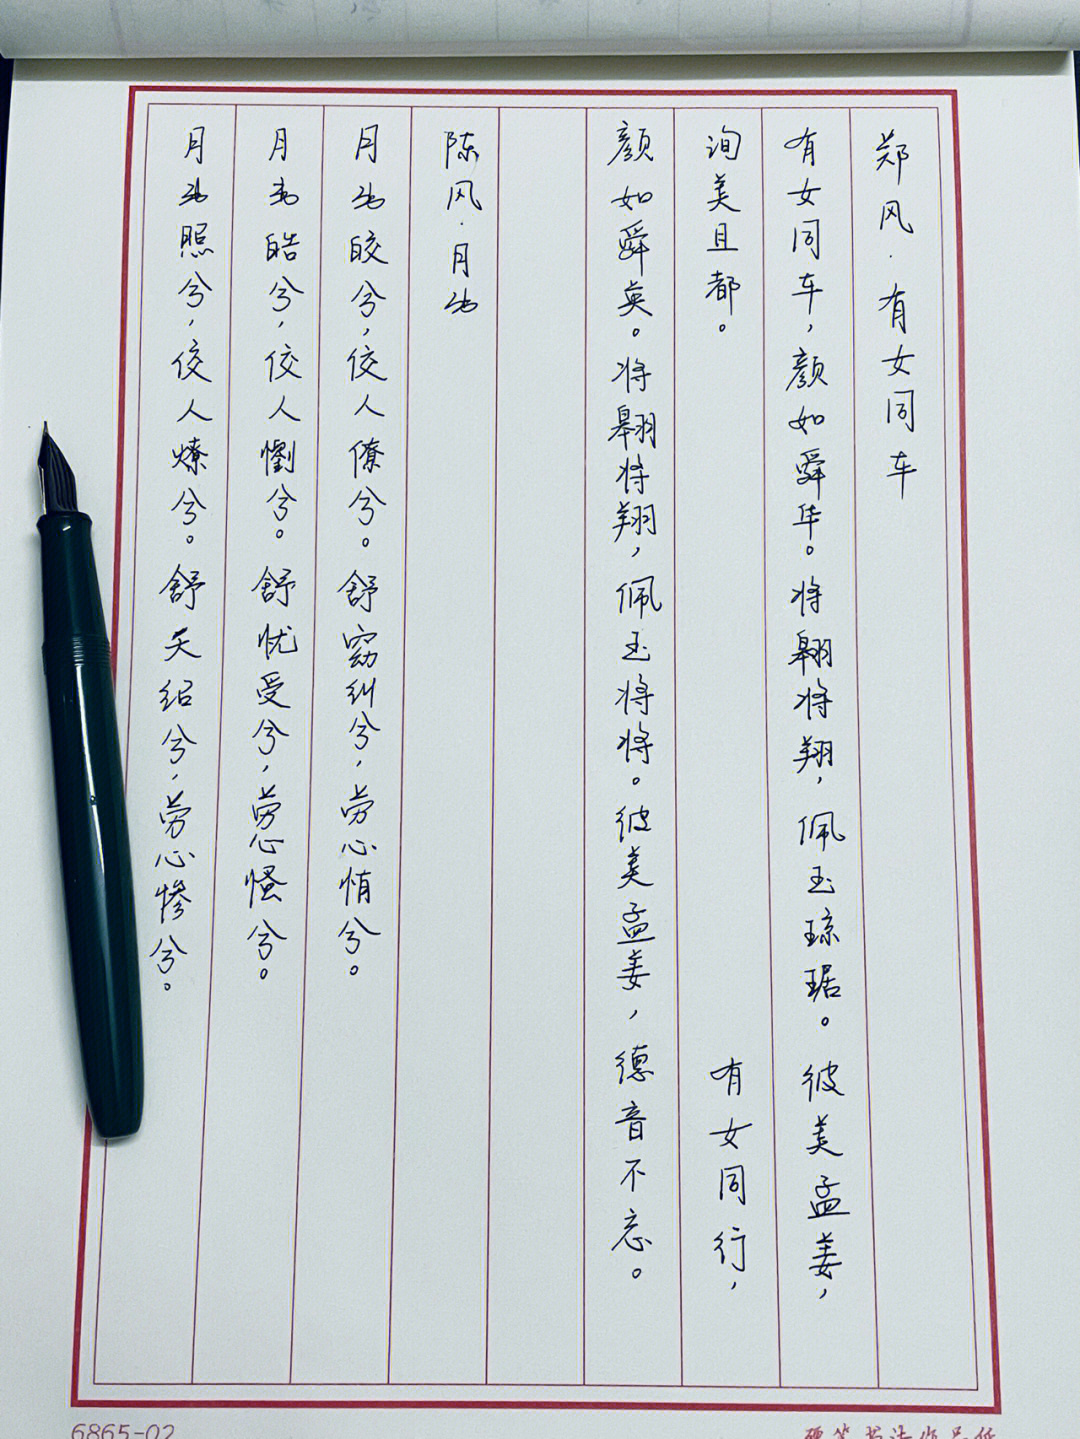 郑风·有女同车
有女同车,颜如舜华。将翱将翔,佩玉琼琚。彼美孟姜,
洵美且都。有女同行,
颜如舜英。将翱将翔,佩玉将将。彼美孟姜,德音不忘。
陈风·月出
月出皎兮,佼人僚兮。舒窈纠兮,劳心悄兮。
月出皓兮,佼人懰兮。舒忧受兮,劳心慅兮。
月出照兮,佼人燎兮。舒夭绍兮,劳心惨兮。
6865-02
硬笔书法作品纸